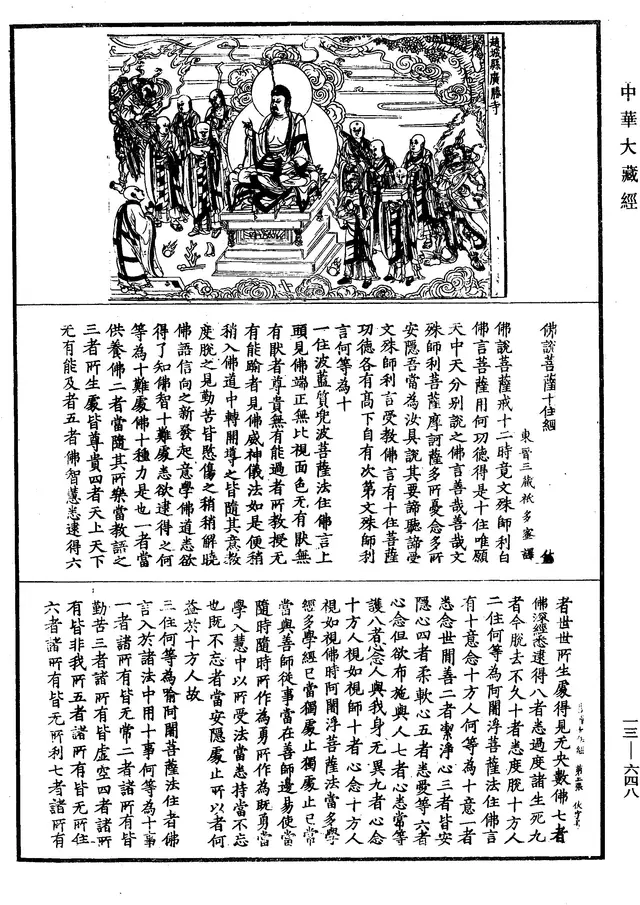 中華大藏經
趙城縣廣勝寺
佛說菩薩十住經
東晉三藏祇多蜜譯
佛說菩薩戒十二時竟文殊師利白
佛言菩薩用何功德得是十住唯願
天中天分別說之佛言善哉善哉文
殊師利菩薩摩訶薩多所憂念多所
安隱吾當為汝具說其要諦聽諦受
文殊師利言受教佛言有十住菩薩
功德各有高下自有次第文殊師利
言何等為十
一住波藍質兜波菩薩法住佛言上
頭見佛端正無比視面色无有猒無
有猒者尊貴無有能過者所教授无
有能踰者見佛威神儀法如是便稍
稍入佛道中轉開導之皆隨其意教
度脫之見勤苦皆慜傷之稍稍解曉
佛語信向之新發起意學佛道悉欲
得了知佛智十難處悉欲逮得之何
等為十難處佛十種力是也一者當
供養佛二者當隨其所樂當教語之
三者所生處皆尊貴四者天上天下
无有能及者五者佛智慧悉逮得六
者世世所生處得見无央數佛七者
佛深經悉逮得八者悉過度諸生死九
者今脫去不久十者悉度脫十方人
二住何等為阿闍浮菩薩法住佛言
有十意念十方人何等為十意一者
悉念世間善二者潔淨心三者皆安
隱心四者柔軟心五者悉愛等六者
心念但欲布施與人七者心悉當等
護八者心念人與我身无異九者心念
十方人視如視師十者心念十方人
視如視佛時阿闍浮菩薩法當多學
經多學經已當獨處止獨處止已常
當與善師從事當在善師邊易使當
隨時隨時所作為勇所作為既勇當
學入慧中以所受法當悉持當不忘
也既不忘者當安隱處止所以者何
益於十方人故
三住何等為喻阿闍菩薩法住者佛
言入於諸法中用十事何等為十事
一者諸所有皆无常二者諸所有皆
勤苦三者諸所有皆虛空四者諸所
有皆非我所五者諸所有皆无所住
六者諸所有皆无所利七者諸所有
一三—六四八